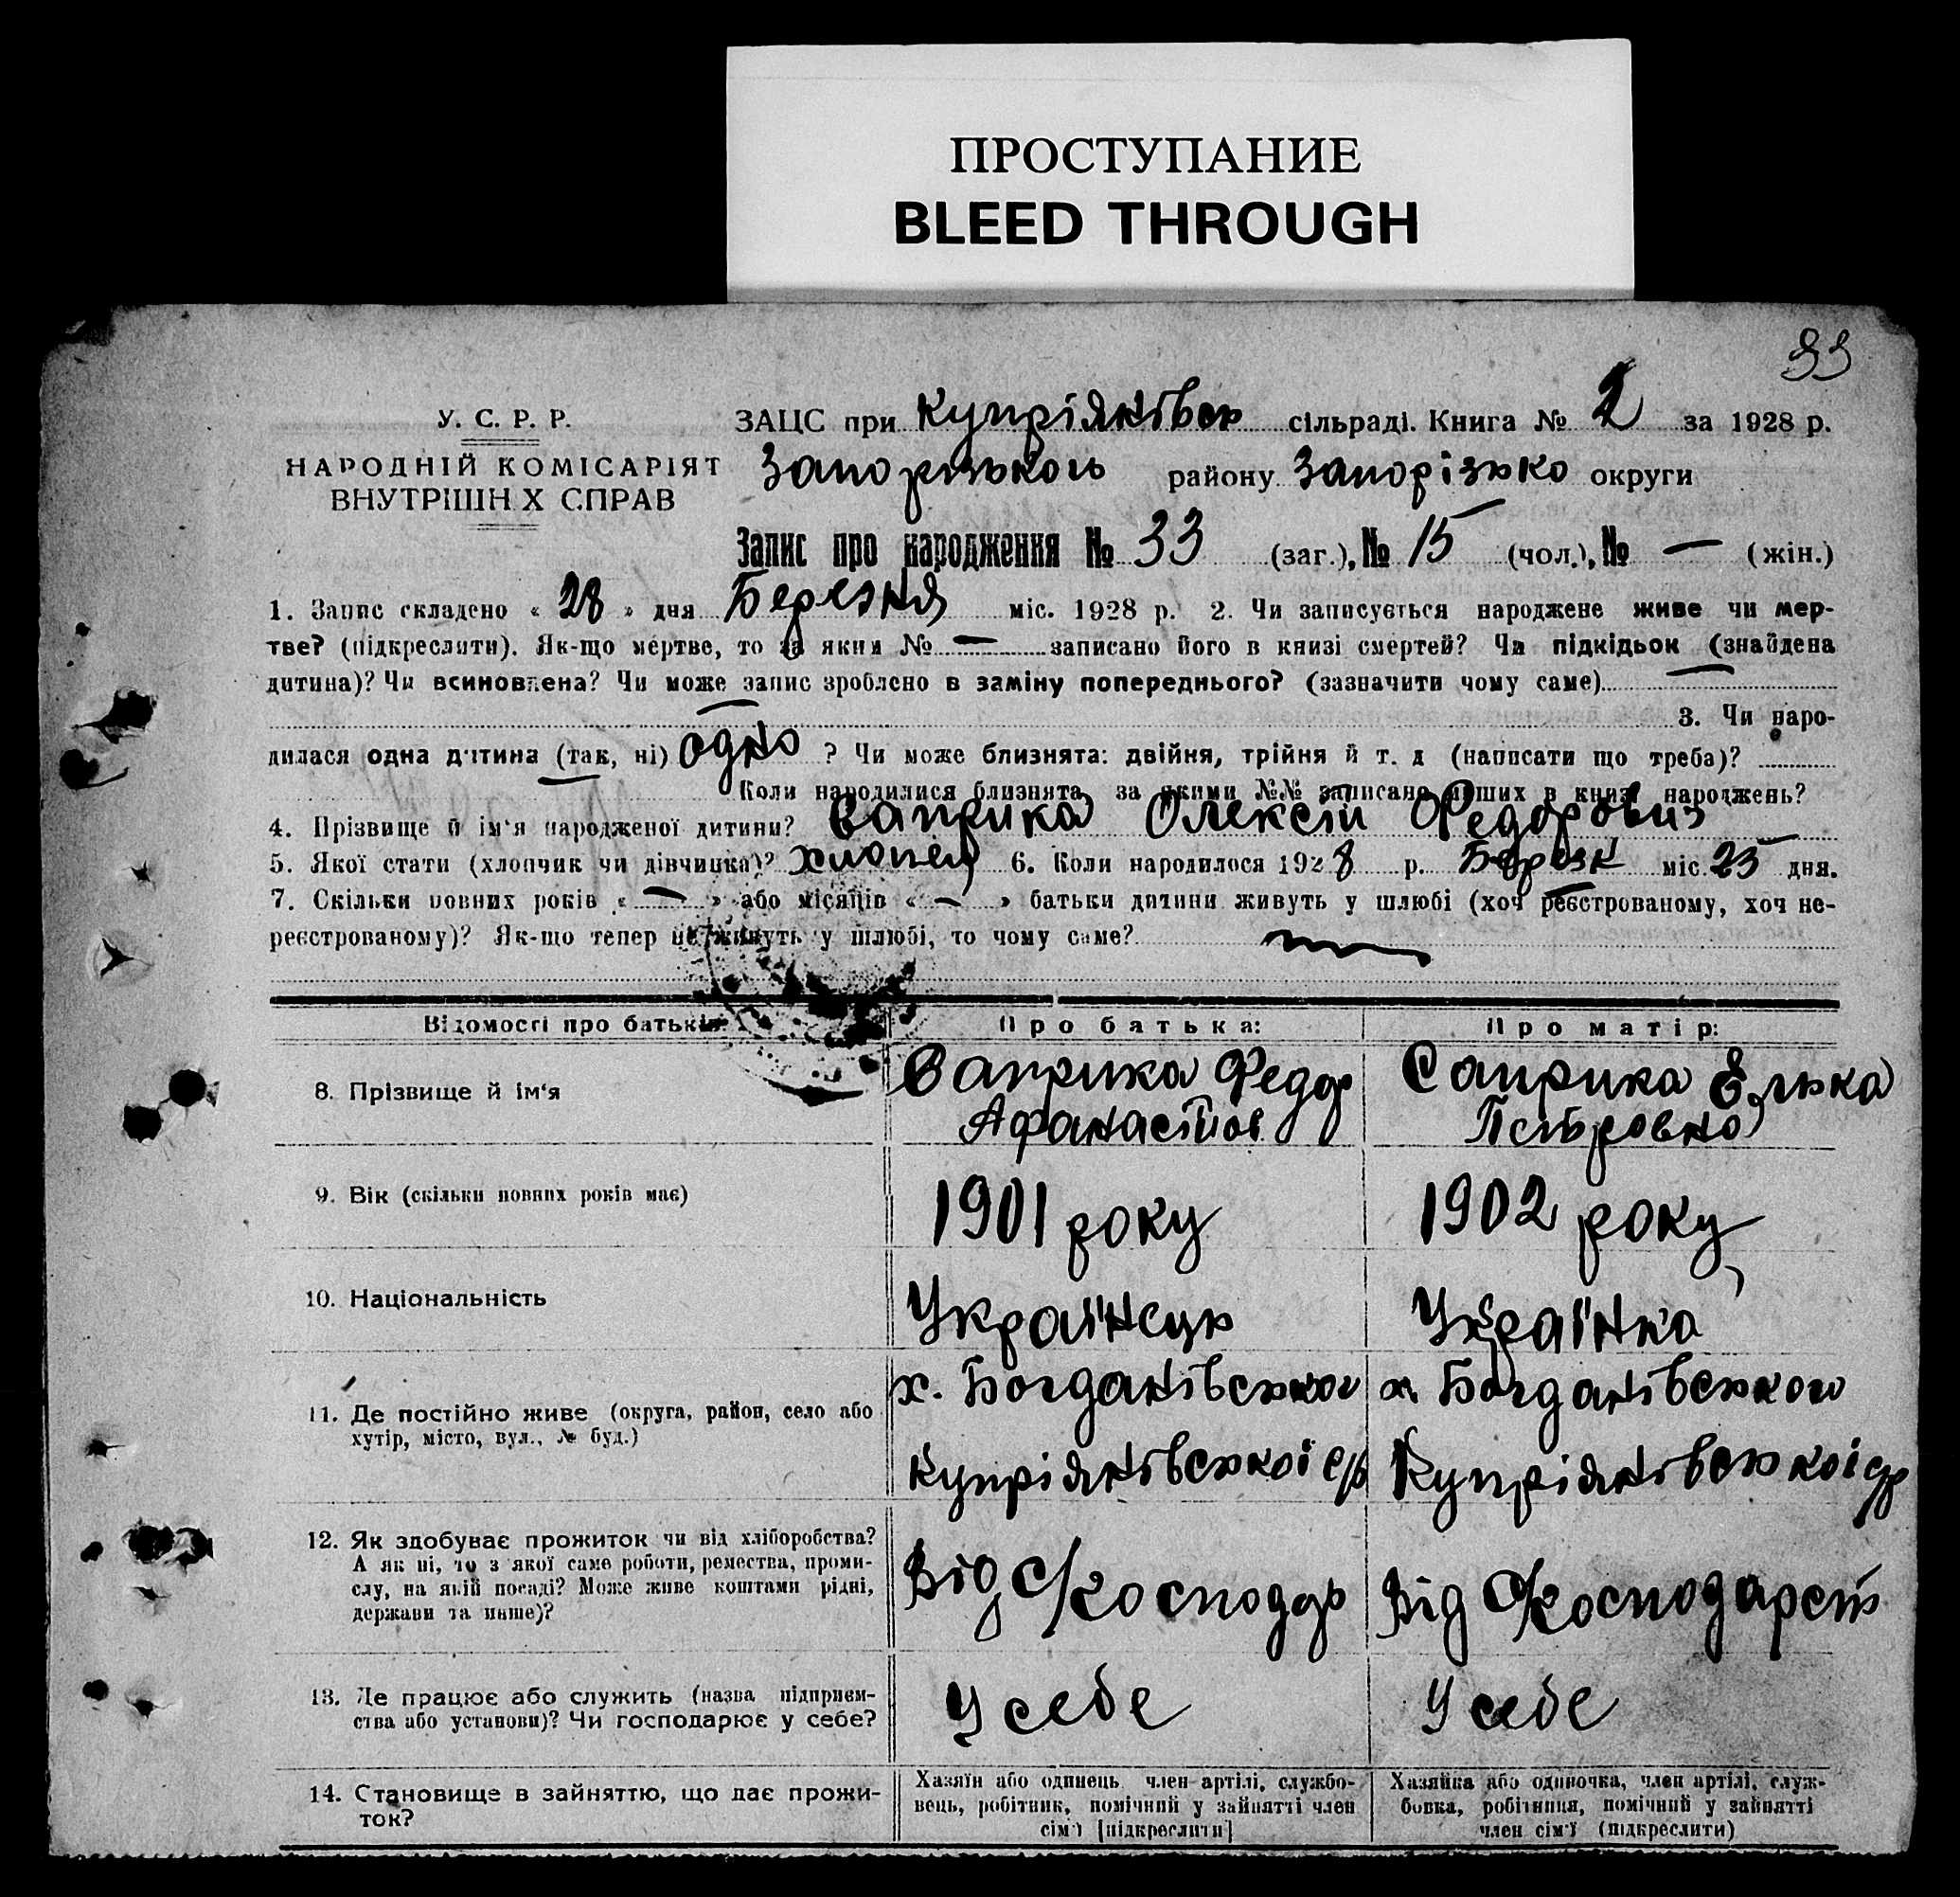 ПРОСТУПАНИЕ
BLEED THROUGH
33
У. С. Р. Р.
НАРОДНІЙ КОМІСАРІЯТ
ВНУТРІШН Х СПРАВ
ЗАЦС при Купріяківськ сільраді. Книга № 2 за 1928 р.
Запорізького району Запорізько округи
Запис про народження № 33 (заг.), № 15 (чол.), № — (жін.)
1. Запис складено « 28 » дня Березня міс. 1928 р. 2. Чи записується народжене живе чи мер-
тве? (підкреслити). Як-що мертве, то за яким № — записано його в книзі смертей? Чи підкідьок (знайдена
дитина)? Чи всиновлена? Чи може запис зроблено в заміну попереднього? (зазначити чому саме)
3. Чи наро-
дилася одна дитина (так, ні) одно ? Чи може близнята: двійня, трійня й т. д (написати що треба)?
Коли народилися близнята, за якими №№ записано інших в книзі народжень?
4. Прізвище й ім'я народженої дитини? Саприка Олексій Федорович
5. Якої стати (хлопчик чи дівчинка)? хлопец 6. Коли народилося 1928 р. Березн міс. 25 дня.
7. Скільки повних років « — » або місяців « — » батьки дитини живуть у шлюбі (хоч реєстрованому, хоч не-
реєстрованому)? Як-що тепер не живуть у шлюбі, то чому саме?
Відомості про батьків Про батька: Про матір:
8. Прізвище й ім'я Саприка Федор Саприка Елька
Афанасійов Петровно
9. Вік (скільки повних років має) 1901 року 1902 року
10. Національність Українець Українка
11. Де постійно живе (округа, район, село або х. Богданівського х. Богданівського
хутір, місто, вул., № буд.)
Купріянівської с/р Купріянівської ср
12. Як здобуває прожиток чи від хліборобства?
А як ні, то з якої саме роботи, ремества, проми-
слу, на якій посаді? Може живе коштами рідні, Від с/господар Від с/господарст
держави та инше)?
13. Де працює або служить (назва підприєм- У себе У себе
ства або установи)? Чи господарює у себе?
14. Становище в зайняттю, що дає прожи- Хазяїн або одинець член артілі, службо- Хазяйка або одиночка, член артілі, служ-
ток? вець, робітник, помічний у зайнятті член бовка, робітниця, помічний у зайнятті
сім'ї [підкреслити] член сім'ї (підкреслити)